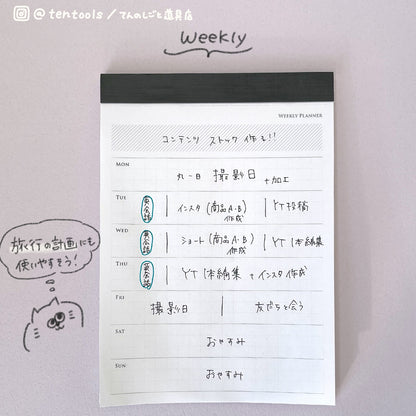 @tentools/てんのしごと道具店
Weekly
WEEKLY PLANNER
コンテンツ ストック 作る!!
MON
丸一日 撮影日 +加工
TUE 英会話 インスタ(商品A・B)作成 YT投稿
WED 英会話 ショート(商品A・B)作成 YT1本編集
THU 英会話 YT1本編集 + インスタ作成
FRI 撮影日 友だちと会う
SAT
おやすみ
SUN
おやすみ
旅行の計画にも
使いやすそう!